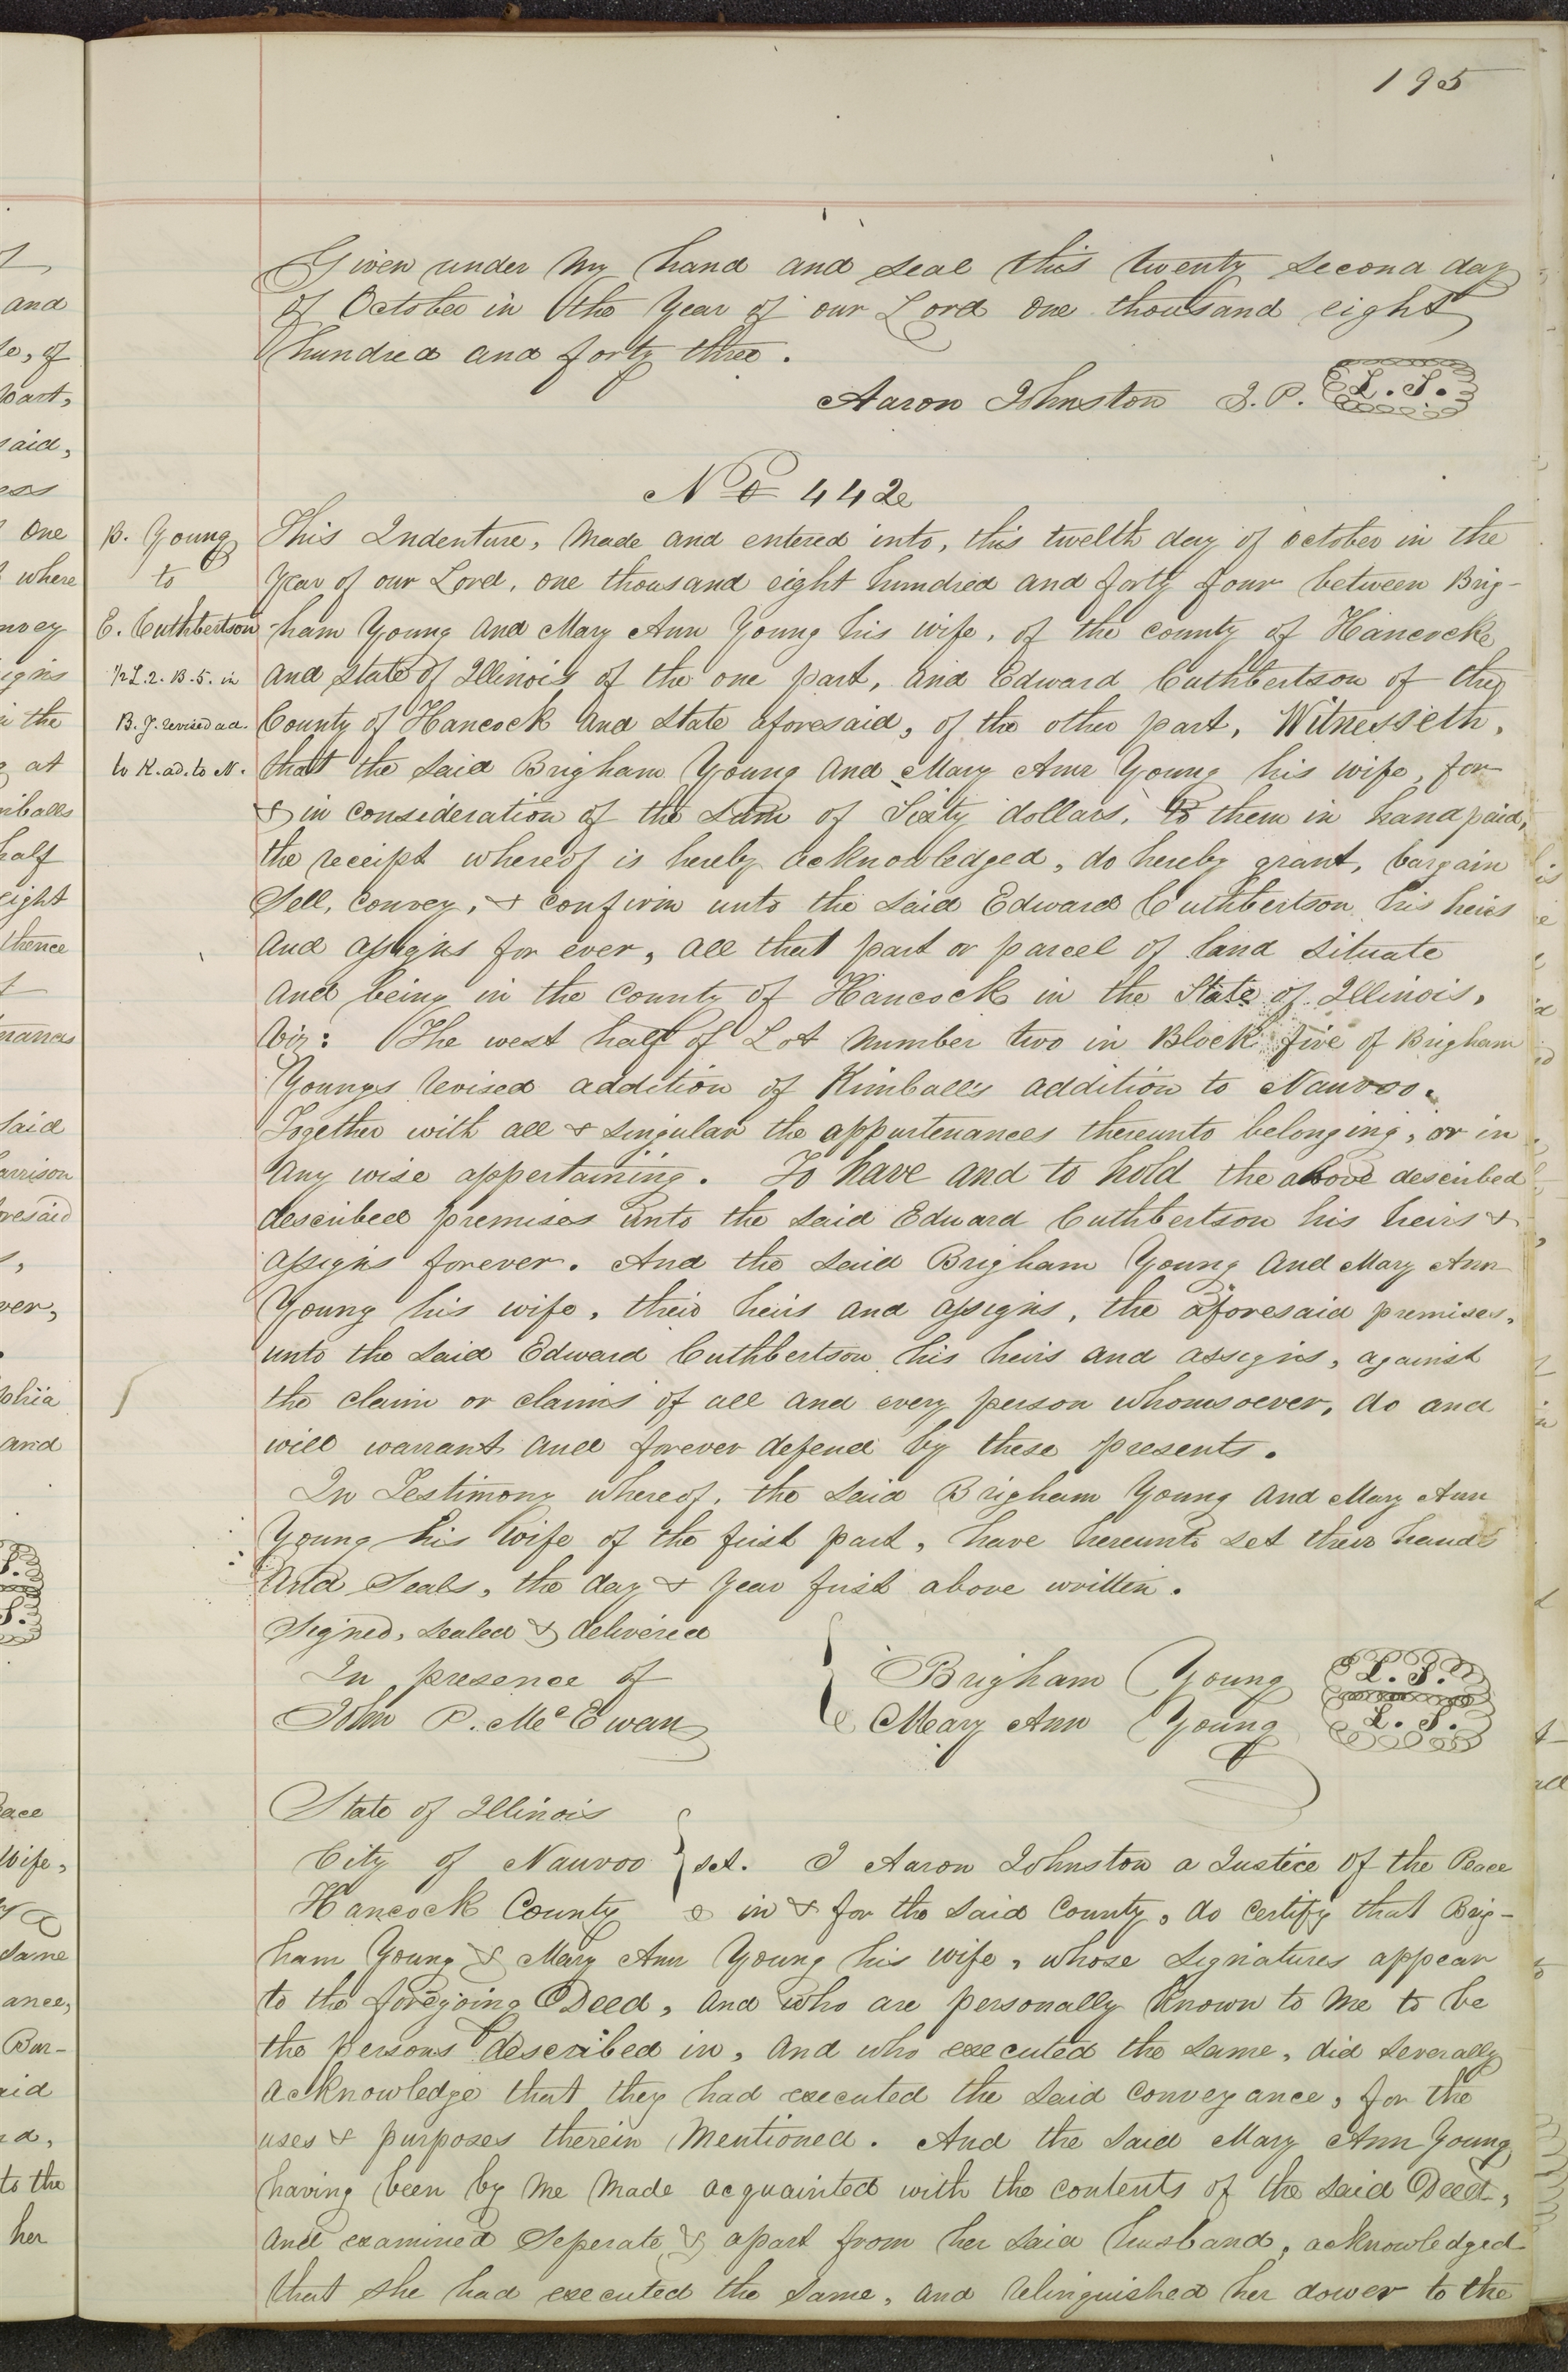 195
Given under my hand and seal this twenty second day
of October in the Year of our Lord one thousand eight
hundred and forty three.
Aaron Johnston J. P. L. S.
No 442
B. Young
to
E. Cuthbertson
1/2 L. 2. B. 5. in
B. Y. revised ad.
to K. ad. to N.
This Indenture, made and entered into, this twelth day of october in the
Year of our Lord, one thousand eight hundred and forty four between Brig-
ham Young and Mary Ann Young his wife, of the county of Hancocke
and State of Illinois of the one part, and Edward Cuthbertson of the
County of Hancock and State aforesaid, of the other part, Witnesseth,
that the said Brigham Young and Mary Ann Young his wife, for
& in consideration of the sum of Sixty dollars, to them in hand paid,
the receipt whereof is hereby acknowledged, do hereby grant, bargain
Sell, convey, & confirm unto the said Edward Cuthbertson his heirs
and assigns for ever, all that part or parcel of land situate
and being in the county of Hancock in the State of Illinois,
Viz: The west half of Lot number two in Block five of Brigham
Youngs revised addition of Kimball's addition to Nauvoo.
Together with all & singular the appurtenances thereunto belonging, or in
any wise appertaining. To have and to hold the above described
described premises unto the said Edward Cuthbertson his heirs &
assigns forever. And the said Brigham Young and Mary Ann
Young his wife, their heirs and assigns, the aforesaid premises,
unto the said Edward Cuthbertson his heirs and assigns, against
the claim or claims of all and every person whomsoever, do and
will warrant and forever defend by these presents.
In Testimony whereof, the said Brigham Young and Mary Ann
Young his wife of the first part, have hereunto set their hands
And Seals, the day & year first above written.
Signed, sealed & delivered
In presence of
John P. McEwan
Brigham Young L. S.
Mary Ann Young L. S.
State of Illinois
City of Nauvoo } sct. I Aaron Johnston a Justice of the Peace
Hancock County in & for the said County, do certify that Brig-
ham Young & Mary Ann Young his wife, whose signatures appear
to the foregoing Deed, and who are personally known to me to be
the persons described in, and who executed the same, did severally
acknowledge that they had executed the said conveyance, for the
uses & purposes therein mentioned. And the said Mary Ann Young
having been by me made acquainted with the contents of the said Deed,
and examined seperate & apart from her said husband, acknowledged
that she had executed the same, and relinquished her dower to the